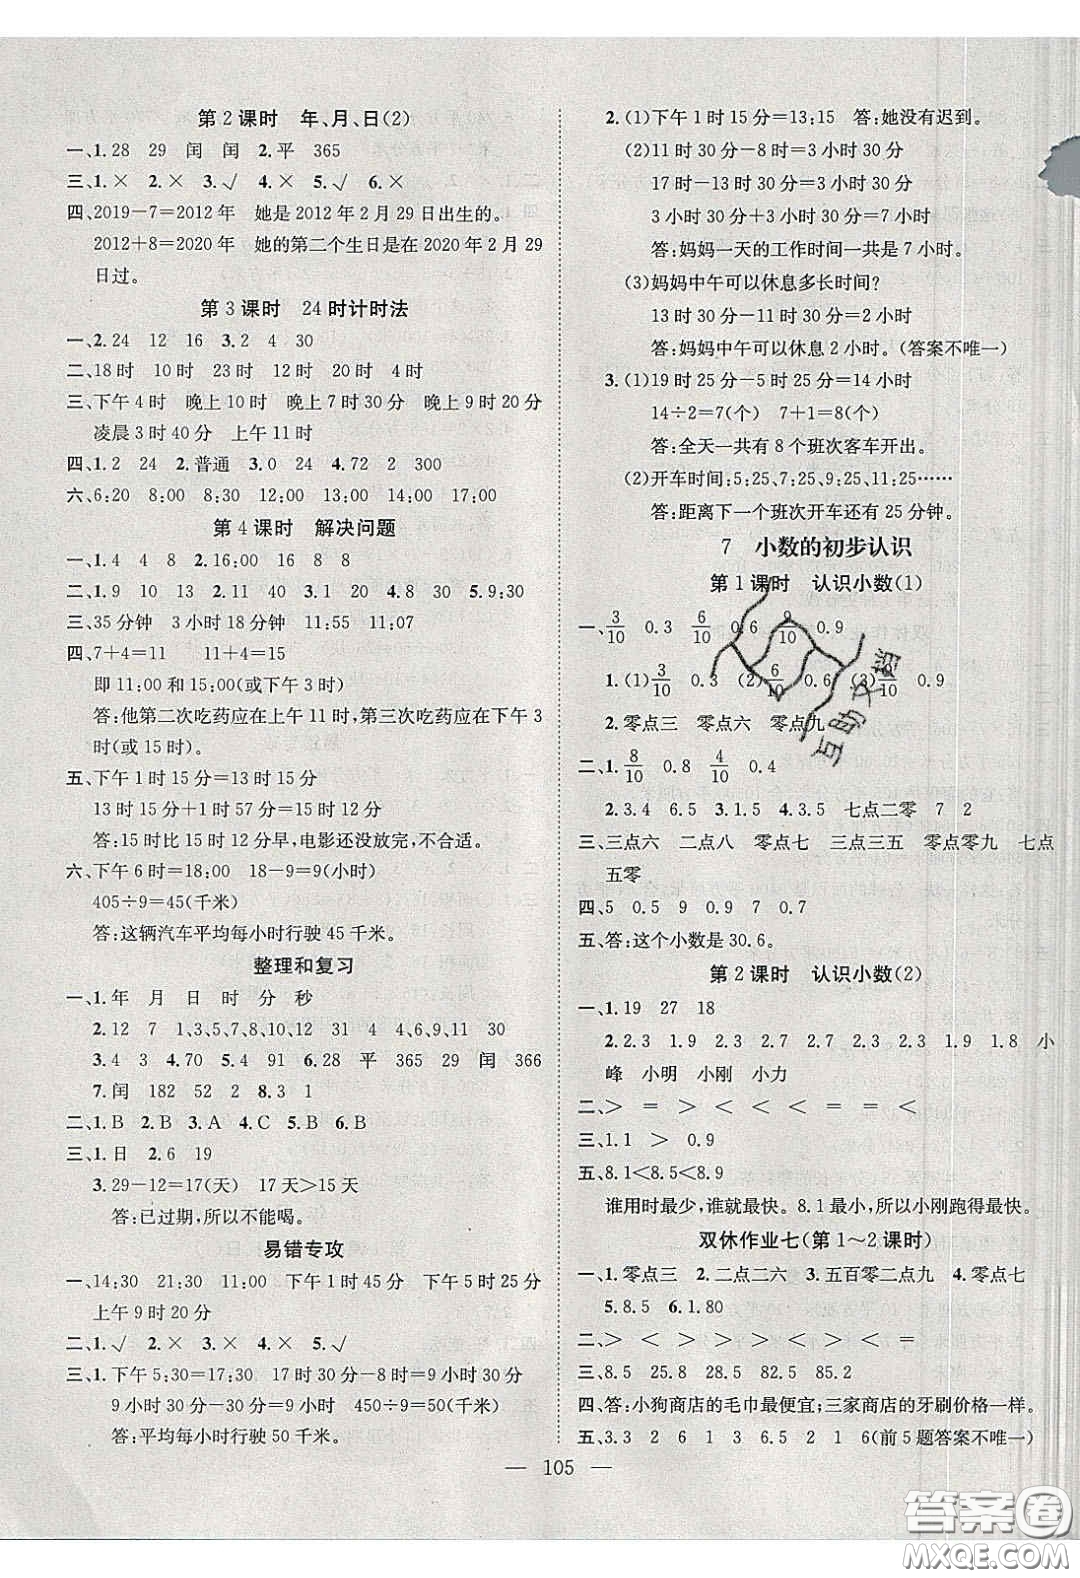 第 2 课时　年、月、日(2)
一、1.28　29　闰　闰　2.平　365
三、1.×　2.×　3.√　4.×　5.√　6.×
四、2019－7＝2012 年　她是 2012 年 2 月 29 日出生的。
2012＋8＝2020 年　她的第二个生日是在 2020 年 2 月 29
日过。
第 3 课时　24 时计时法
一、2.24　12　16　3.2　4　30
二、18 时　10 时　23 时　12 时　20 时　4 时
三、下午 4 时　晚上 10 时　晚上 7 时 30 分　晚上 9 时 20 分
凌晨 3 时 40 分　上午 11 时
四、1.2　24　2.普通　3.0　24　4.72　2　300
六、6:20　8:00　8:30　12:00　13:00　14:00　17:00
第 4 课时　解决问题
一、1.4　4　8　2.16:00　16　8　8
二、1.9　10　13　2.40　3.1　20　4.8　30　5.9:30
三、35 分钟　3 小时 18 分钟　11:55　11:07
四、7＋4＝11　11＋4＝15
即 11:00 和 15:00(或下午 3 时)
答:他第二次吃药应在上午 11 时,第三次吃药应在下午 3
时(或 15 时)。
五、下午 1 时 15 分＝13 时 15 分
13 时 15 分＋1 时 57 分＝15 时 12 分
答:15 时比 15 时 12 分早,电影还没放完,不合适。
六、下午 6 时＝18:00　18－9＝9(小时)
405÷9＝45(千米)
答:这辆汽车平均每小时行驶 45 千米。
整理和复习
一、1.年　月　日　时　分　秒
2.12　7　1,3,5,7,8,10,12　31　4　4,6,9,11　30
3.4　3　4.70　5.91　6.28　平　365　29　闰　366
7.闰　182　52　2　8.3　1
二、1.B　2.B　3.A　4.C　5.B　6.B
三、1.日　2.6　19
3.29－12＝17(天)　17 天＞15 天
答:已过期,所以不能喝。
易错专攻
一、14:30　21:30　11:00　下午 1 时 45 分　下午 5 时 25 分
上午 9 时 20 分
二、1.√　2.×　3.×　4.×　5.√
三、1.下午 5:30＝17:30　17 时 30 分－8 时＝9 小时 30 分
9 小时 30 分－30 分＝9 小时　450÷9＝50(千米)
答:平均每小时行驶 50 千米。
2.(1)下午 1 时 15 分＝13:15　答:她没有迟到。
(2)11 时 30 分－8 时＝3 小时 30 分
17 时－13 时 30 分＝3 小时 30 分
3 小时 30 分＋3 小时 30 分＝7 小时
答:妈妈一天的工作时间一共是 7 小时。
(3)妈妈中午可以休息多长时间?
13 时 30 分－11 时 30 分＝2 小时
答:妈妈中午可以休息 2 小时。(答案不唯一)
3.(1)19 时 25 分－5 时 25 分＝14 小时
14÷2＝7(个)　7＋1＝8(个)
答:全天一共有 8 个班次客车开出。
(2)开车时间:5:25,7:25,9:25,11:25……
答:距离下一个班次开车还有 25 分钟。
7　小数的初步认识
第 1 课时　认识小数(1)
一、3/10　0.3　6/10　0.6　9/10　0.9
1.(1)3/10　0.3　(2)6/10　0.6　(3)9/10　0.9
2.零点三　零点六　零点九
二、1.8/10　0.8　4/10　0.4
2.3.4　6.5　3.1.5　4.3.5　七点二零　7　2
三、三点六　二点八　零点七　三点三五　零点零九　七点
五零
四、5　0.5　9　0.9　7　0.7
五、答:这个小数是 30.6。
第 2 课时　认识小数(2)
一、1.19　27　18
2.2.3　1.9　1.8　2.3　2.7　2.7　2.3　1.9　1.8　小
峰　小明　小刚　小力
二、＞　＝　＞　＜　＜　＜　＝　＜
三、1.1　＞　0.9
五、8.1＜8.5＜8.9
谁用时最少,谁就最快。8.1 最小,所以小刚跑得最快。
双休作业七(第 1～2 课时)
一、1.零点三　2.二点二六　3.五百零二点九　4.零点七
5.8.5　6.1.80
二、＞　＜　＞　＞　＞　＜　＞　＜　＝
三、8.5　25.8　28.5　82.5　85.2
四、答:小狗商店的毛巾最便宜;三家商店的牙刷价格一样。
五、3.3　2　6　1　3　6.5　2　1　6(前 5 题答案不唯一)
105
互助文档
答案圈
MXQE.COM